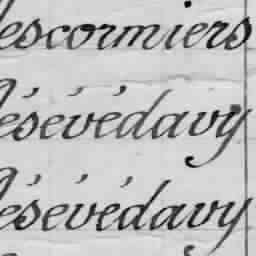 escormiers
ésévédavy
ésévédavy